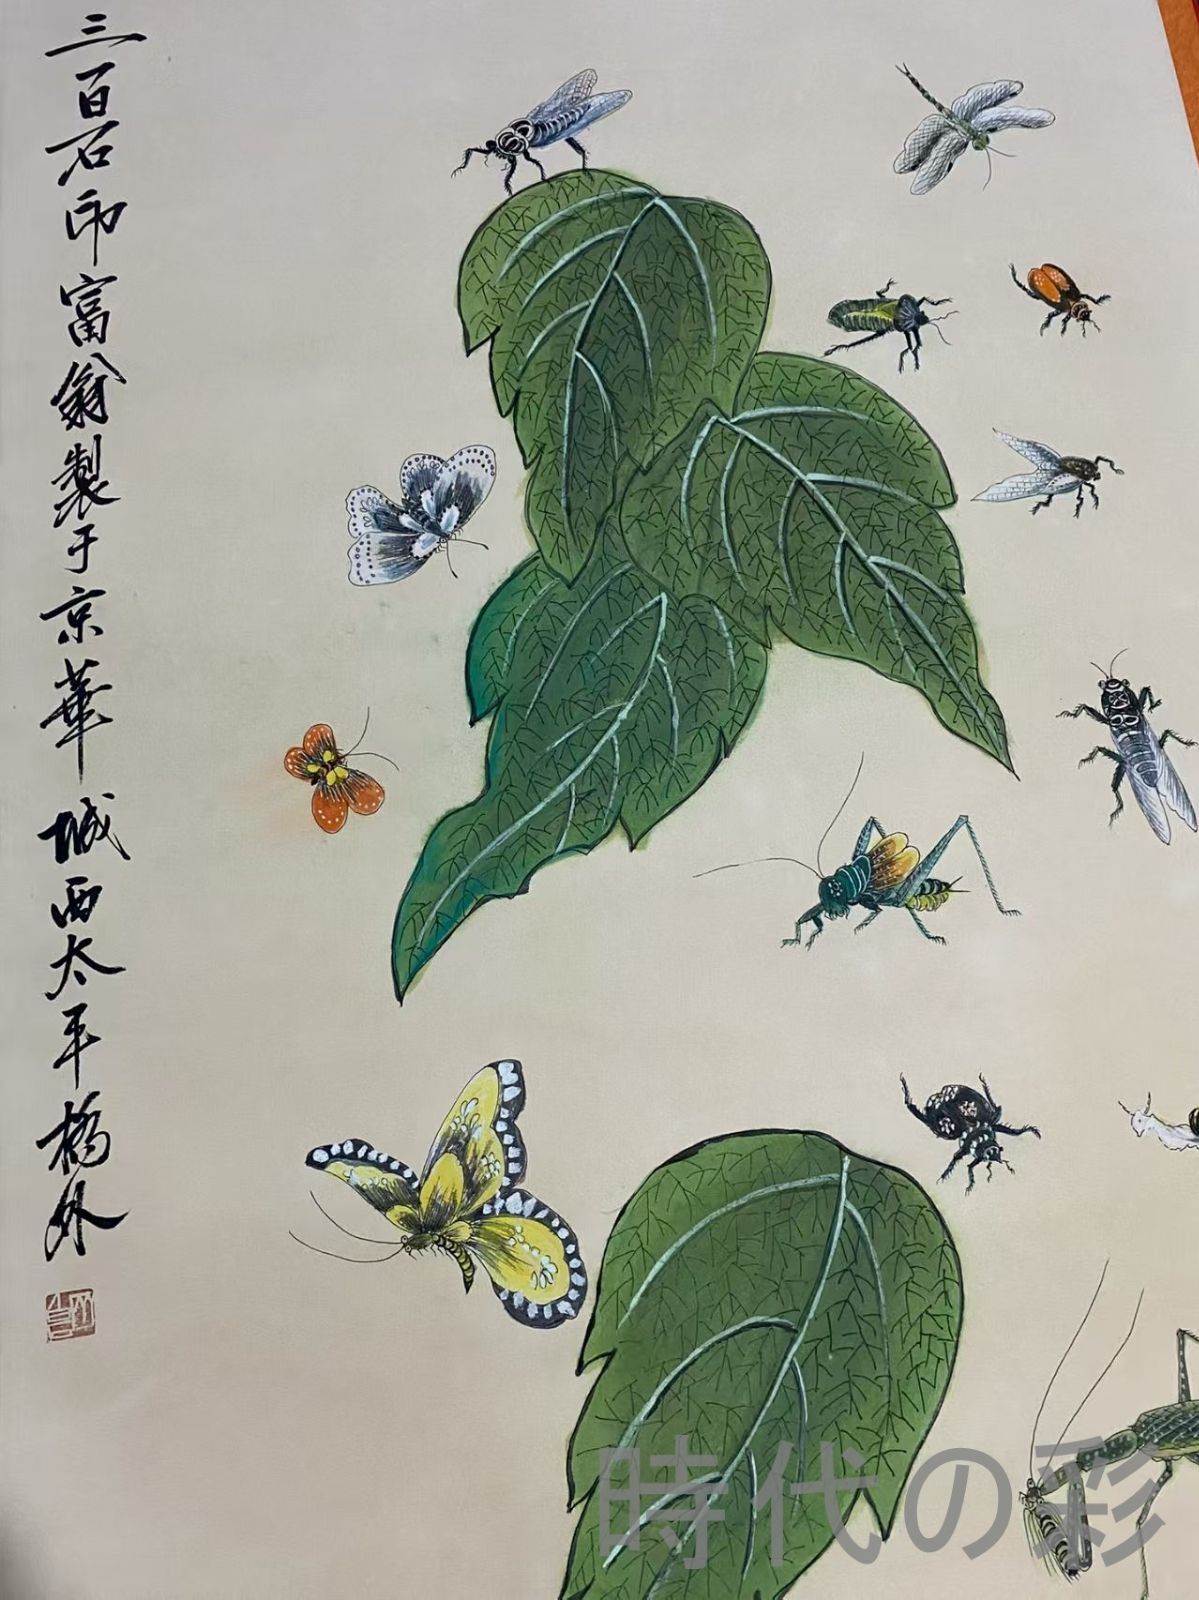 三百石印富翁製于京華城西太平橋外
時代の彩